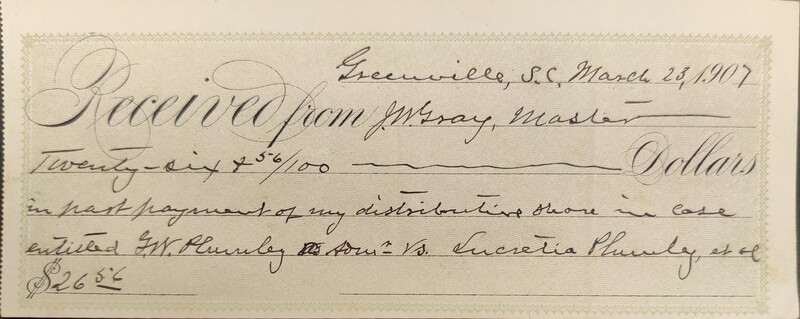 Greenville, S.C. March 23, 1907
Received from J.W. Gray, Master
Twenty-six & 56/100 Dollars
in part payment of my distributive share in case
entitled G.W. Plumley as Admr vs. Lucretia Plumley, et al
$26 56